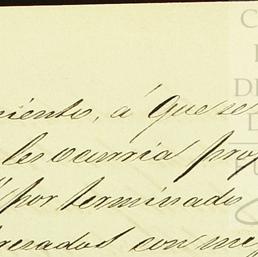 niento, á que se
les ocurria prop
por terminado
resados con me